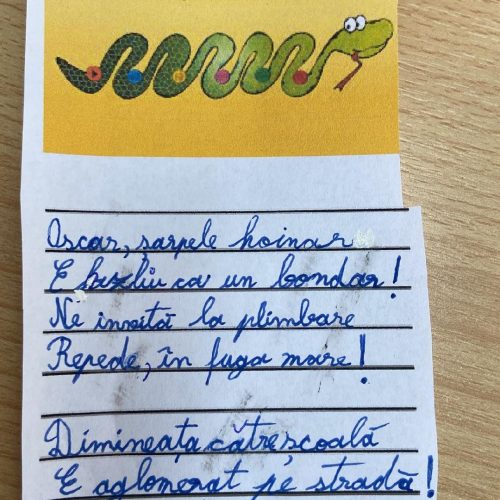 Oscar, sarpele hoinar
E hazliu ca un bondar!
Ne invită la plimbare
Repede, în fuga mare!
Dimineața către școală
E aglomerat pe stradă!